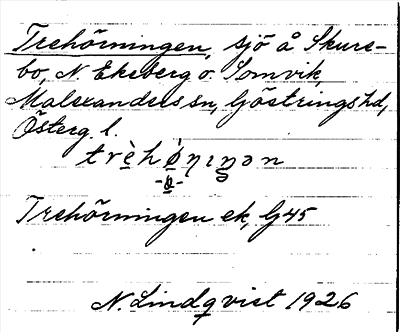 Trehörningen, sjö å Skure-
bo, N. Ekeberg o. Somvik,
Malexanders sn, Göstrings hd,
Österg. l.
Trehörningen ek, G45
N. Lindqvist 1926